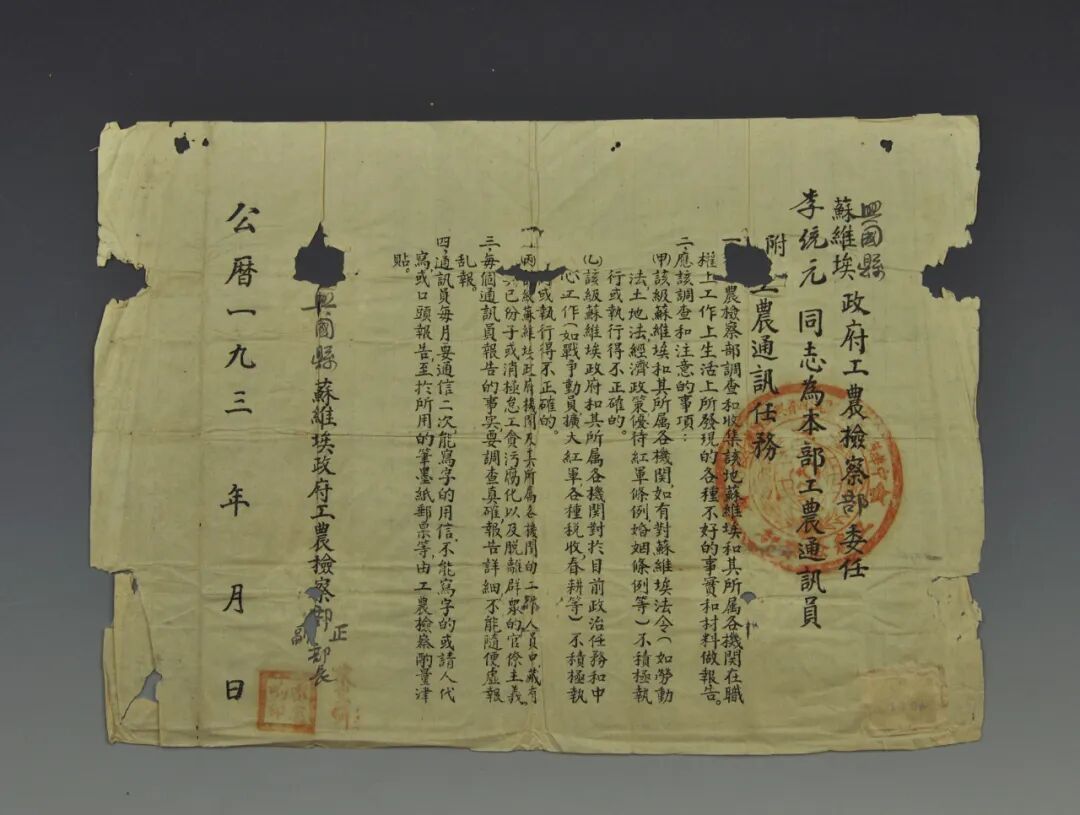 興國縣
蘇維埃政府工農檢察部委任
李統元同志為本部工農通訊員
附 工農通訊任務
一 農檢察部調查和收集該地蘇維埃和其所属各機関在職
权上工作上生活上所發現的各種不好的事實和材料做報告。
二、應該調查和注意的事項:
(甲)該級蘇維埃和其所属各機関,如有對蘇維埃法令(如勞動
法土地法經濟政策優待紅軍條例婚姻條例等)不積極執
行或執行得不正確的。
(乙)該級蘇維埃政府和其所属各機関對於目前政治任務和中
心工作(如戰爭動員擴大紅軍各種税收,春耕等)不積極執
行或執行得不正確的。
級蘇維埃政府機関及其所屬各機関的工作人員中藏有
己份子或消極怠工貪污腐化以及脱離群眾的官僚主義。
三、每個通訊員報告的事实,要調查真確報告詳細不能随便虛報
乱報。
四、通訊員每月要通信二次能寫字的用信,不能寫字的或請人代
寫或口頭報告至於所用的筆墨紙郵票等,由工農檢察酌量津
貼。
興國縣蘇維埃政府工農檢察部正副部長
公曆一九三 年 月 日